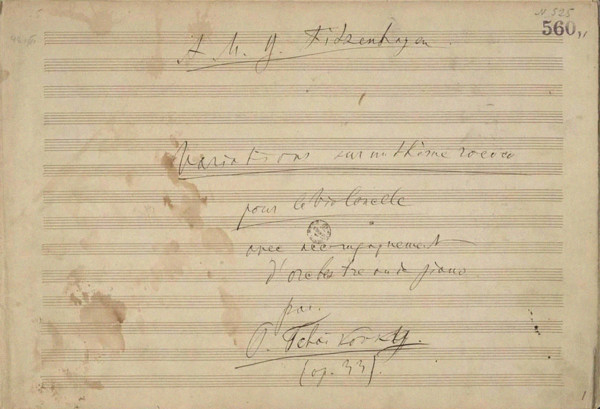 N 525
560,,
A M. G. Fitzenhagen.
Variations sur un thème rococo
pour le Violoncelle
avec accompagnement
d'orchestre ou de piano
par.
P. Tchaikovsky.
(op. 33).
1